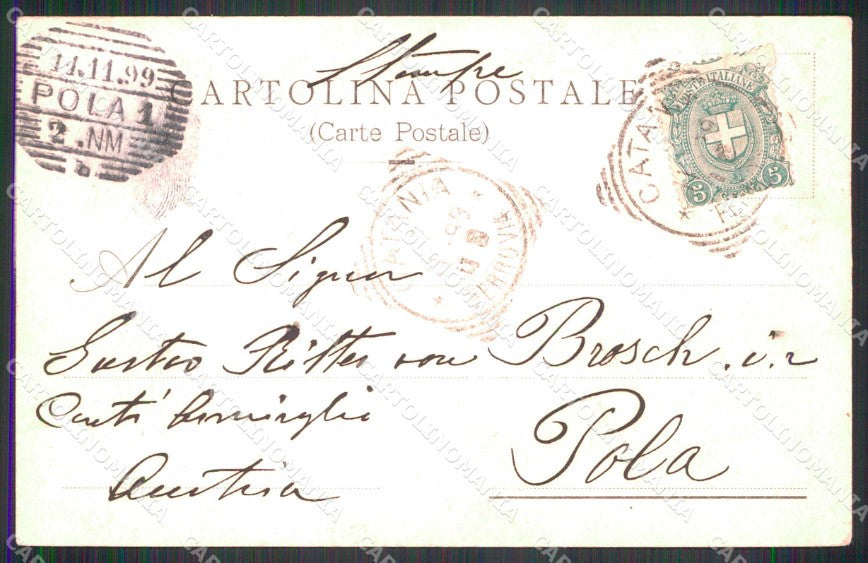 Stampe
CARTOLINA POSTALE
(Carte Postale)
14.11.99
POLA 1
2.NM
b
CATANIA
FERROVIA
CATANIA
POSTE ITALIANE
5 5
Al Signor
Gustav Ritter von Brosch
Pola
Austria
CARTOLINOMANIA